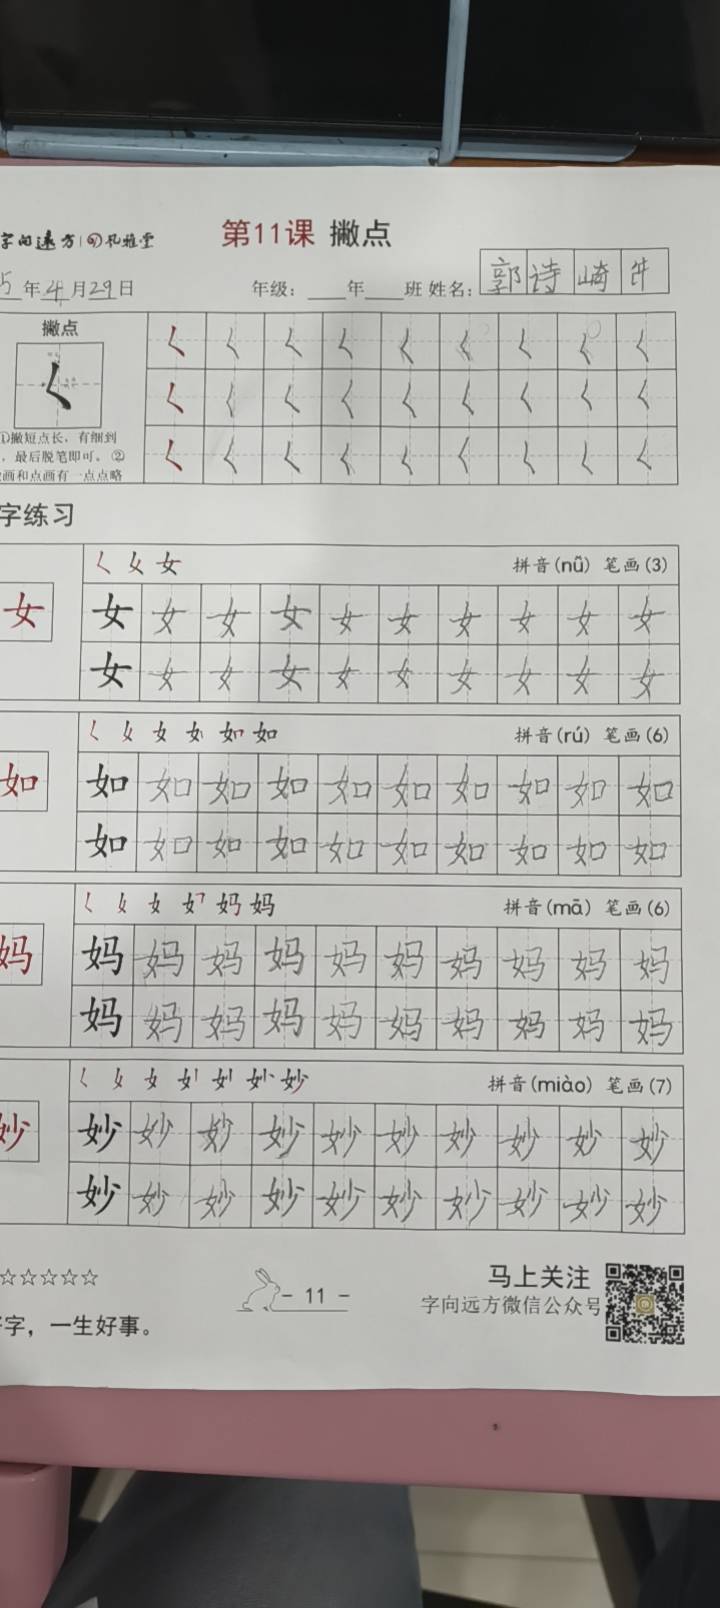 字向遠方 孔雅堂
第11课 撇点
5年4月29日 年级：____年____班 姓名：郭诗崎
撇点
①撇短点长，有细到
，最后脱笔即可。②
画和点画有一点点略
字练习
女 拼音(nǚ) 笔画(3)
女 女 女 女 女 女 女 女 女 女 女
女 女 女 女 女 女 女 女 女 女
女 如 如 拼音(rú) 笔画(6)
如 如 如 如 如 如 如 如 如 如 如
如 如 如 如 如 如 如 如 如 如
女 妈 妈 拼音(mā) 笔画(6)
妈 妈 妈 妈 妈 妈 妈 妈 妈 妈 妈
妈 妈 妈 妈 妈 妈 妈 妈 妈 妈
女 妙 拼音(miào) 笔画(7)
妙 妙 妙 妙 妙 妙 妙 妙 妙 妙 妙
妙 妙 妙 妙 妙 妙 妙 妙 妙 妙
☆☆☆☆☆
- 11 -
马上关注
字向远方微信公众号
字，一生好事。